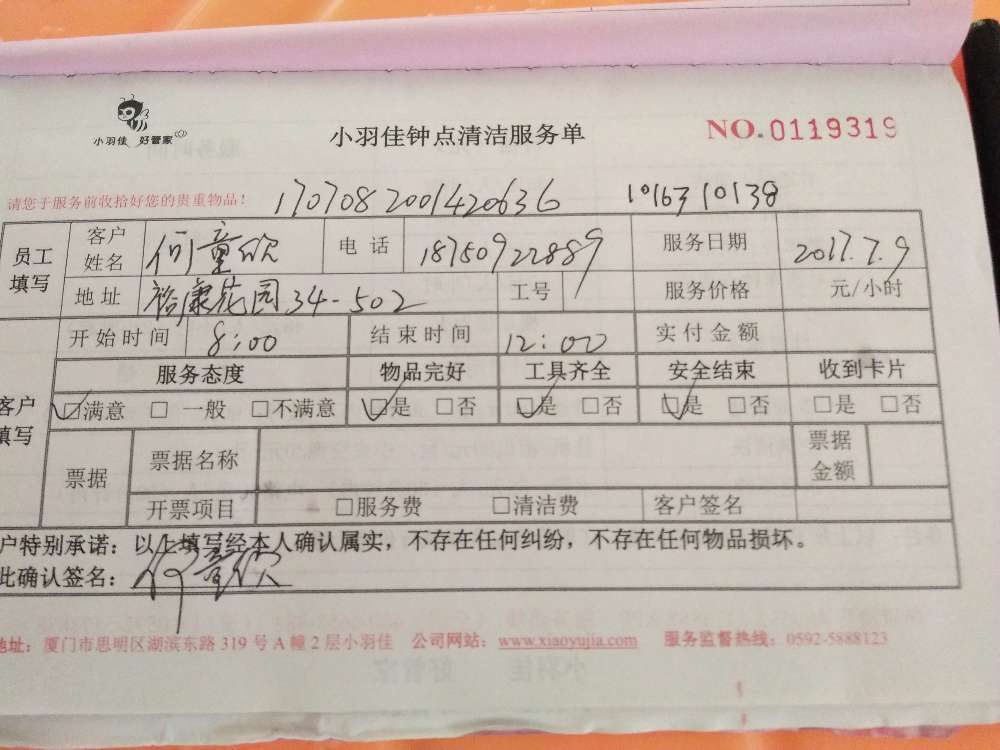 小羽佳 好管家
小羽佳钟点清洁服务单
NO.0119319
请您于服务前收拾好您的贵重物品！ 1707082001420636 1016310138
员工填写 客户姓名 何童欣 电话 18750922889 服务日期 2017.7.9
地址 裕康花园34-502 工号 服务价格 元/小时
开始时间 8:00 结束时间 12:00 实付金额
客户填写 服务态度 物品完好 工具齐全 安全结束 收到卡片
☑满意 □ 一般 □不满意 ☑是 □否 ☑是 □否 ☑是 □否 □是 □否
票据 票据名称 票据金额
开票项目 □服务费 □清洁费 客户签名
户特别承诺：以上填写经本人确认属实，不存在任何纠纷，不存在任何物品损坏。
此确认签名：何童欣
地址：厦门市思明区湖滨东路 319 号 A 幢 2 层小羽佳 公司网站：www.xiaoyujia.com 服务监督热线：0592-5888123